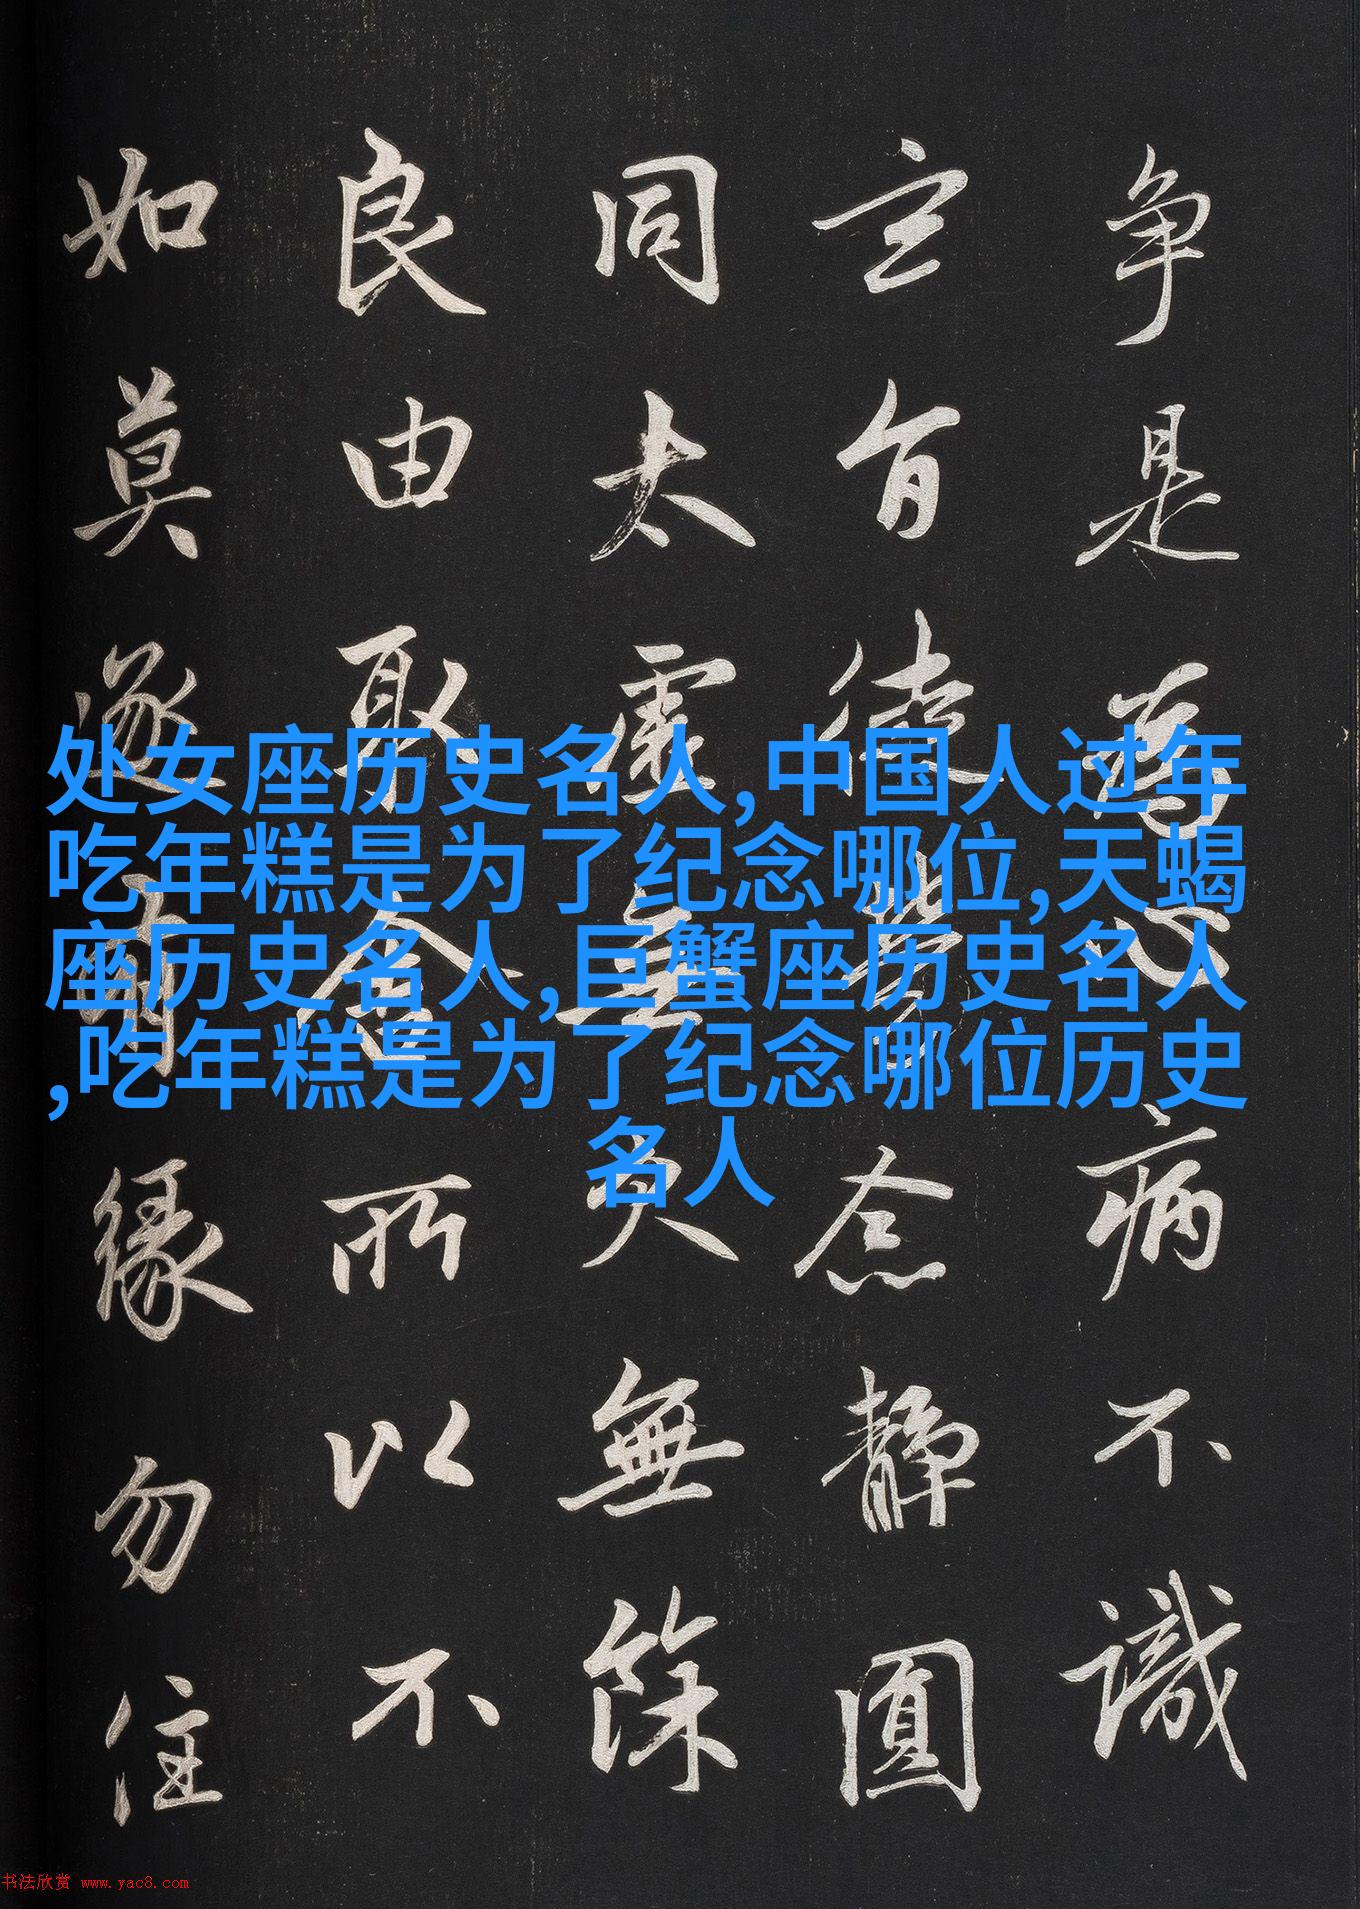 争是為心病不識
玄旨徒勞念静圓
同太虛無欠無餘
良由取舍所以不
如莫逐有緣勿住
处女座历史名人,中国人过年
吃年糕是为了纪念哪位,天蝎
座历史名人,巨蟹座历史名人
,吃年糕是为了纪念哪位历史
名人
书法欣赏 www.yac8.com